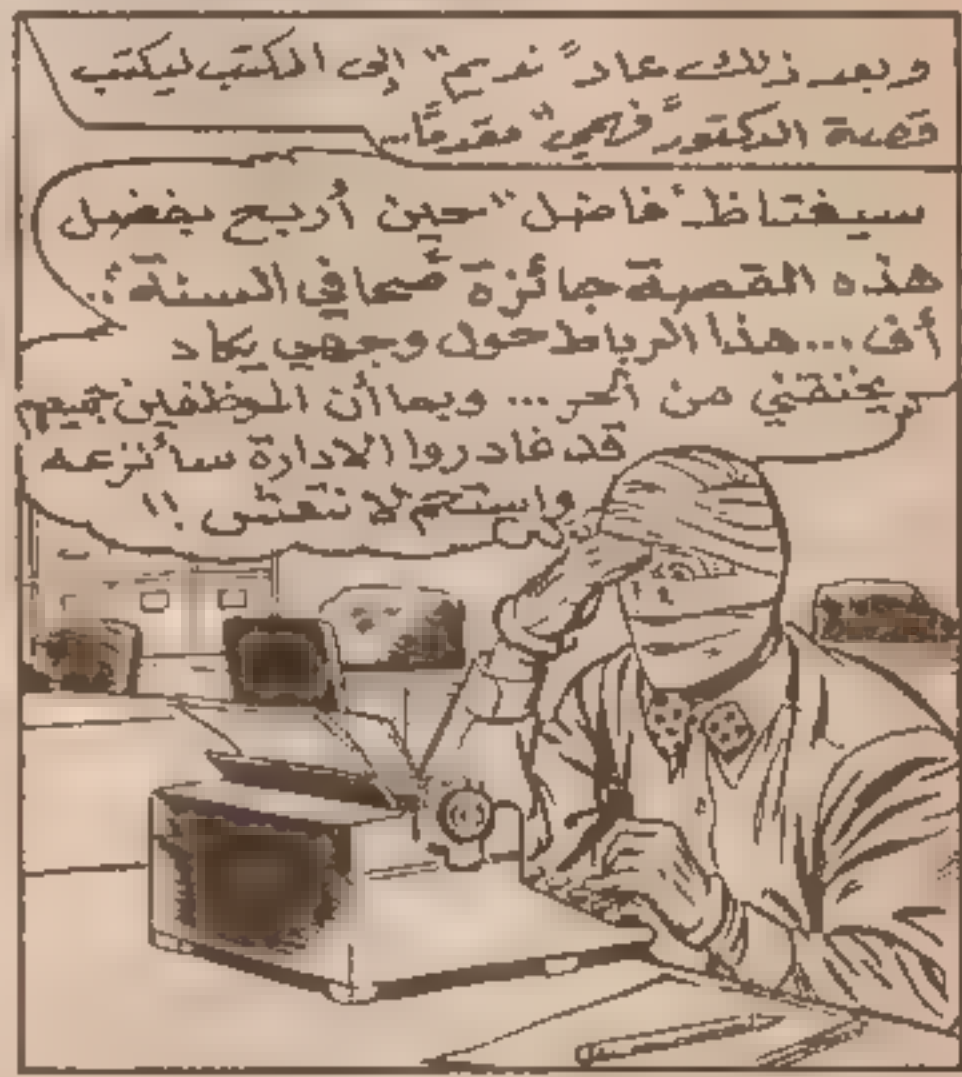 وبعد ذلك عاد "نديم" إلى المكتب ليكتب
قصة الدكتور "فهمي" مقدمًا...
سيغتاظ "فاضل" حين أربح بفضل
هذه القصة جائزة صحافي السنة!..
أف... هذا الرباط حول وجهي يكاد
يخنقني من الحر... وبما أن الموظفين جميعهم
قد غادروا الادارة سأنزعه
واستحم لانتعش !!